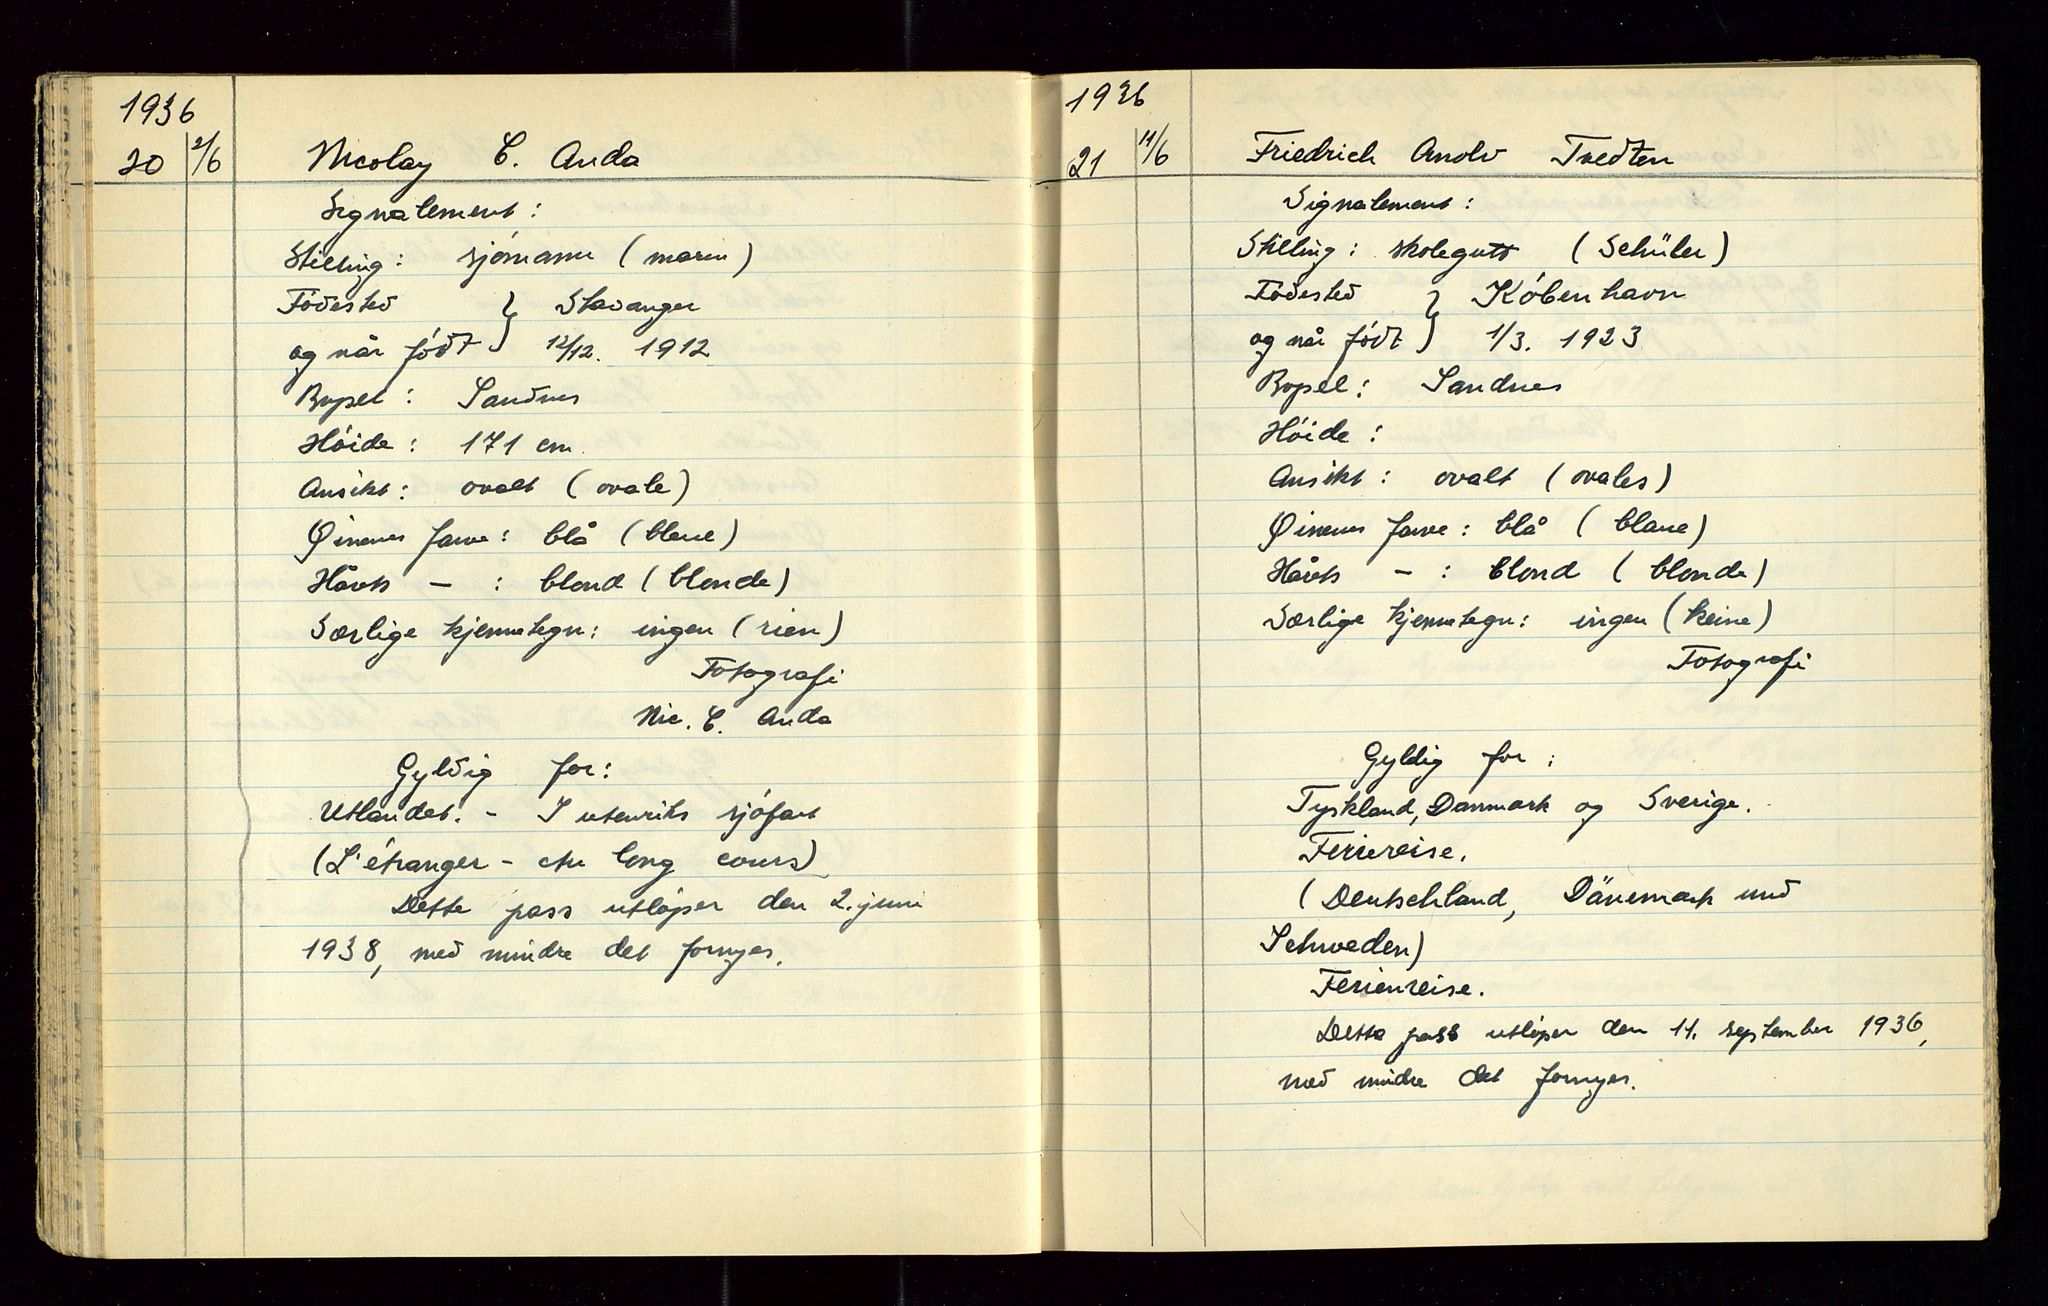 1936
20 2/6 Nicolay C. Anda
Signalement:
Stilling: sjómann (marin)
Fódested } Stavanger
og når fódt } 12/12. 1912
Bopel: Sandnes
Hóide: 171 cm.
Ansikt: ovalt (ovale)
Øinenes farve: blå (bleue)
Hårets — : blond (blonde)
Særlige kjennetegn: ingen (rien)
Fotografi
Nic. C. Anda
Gyldig for:
Utlandet. - I utenriks sjófart
(L'étranger - au long cours)
Dette pass utlóper den 2. juni
1938, med mindre det fornyes.
1936
21 11/6 Friedrich Arnold Tvedten
Signalement:
Stilling: skolegutt (Schüler)
Fódested } Kóbenhavn
og når fódt } 1/3. 1923
Bopel: Sandnes
Hóide:
Ansikt: ovalt (ovales)
Øinenes farve: blå (blaue)
Hårets — : blond (blonde)
Særlige kjennetegn: ingen (keine)
Fotografi
Gyldig for:
Tyskland, Danmark og Sverige.
Feriereise.
(Deutschland, Dänemark und
Schweden)
Ferienreise.
Dette pass utlóper den 11. september 1936,
med mindre det fornyes.